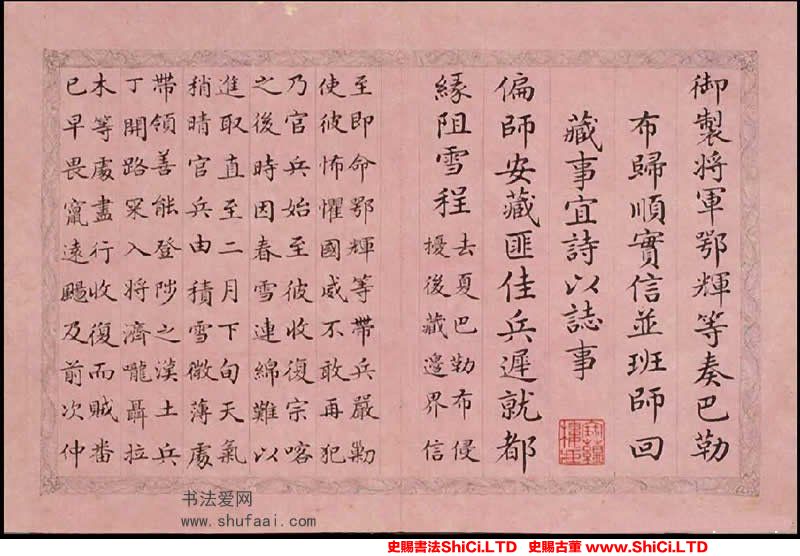 御製將軍鄂輝等奏巴勒
布歸順實信並班師回
藏事宜詩以誌事
偏師安藏匪佳兵遲就都
緣阻雪程
去夏巴勒布侵
擾後藏邊界信
至即命鄂輝等帶兵嚴勦
使彼怖懼國威不敢再犯
乃官兵始至彼收復宗喀
之後時因春雪連綿難以
進取直至二月下旬天氣
稍晴官兵由積雪微薄處
帶領善能登陟之漢土兵
丁開路罙入將濟嚨聶拉
木等處盡行收復而賊番
已早畏竄遠颺及前次仲
书法爱网
www.shufaai.com
史賜書法ShiCi.LTD 史賜古董 www.ShiCi.LTD